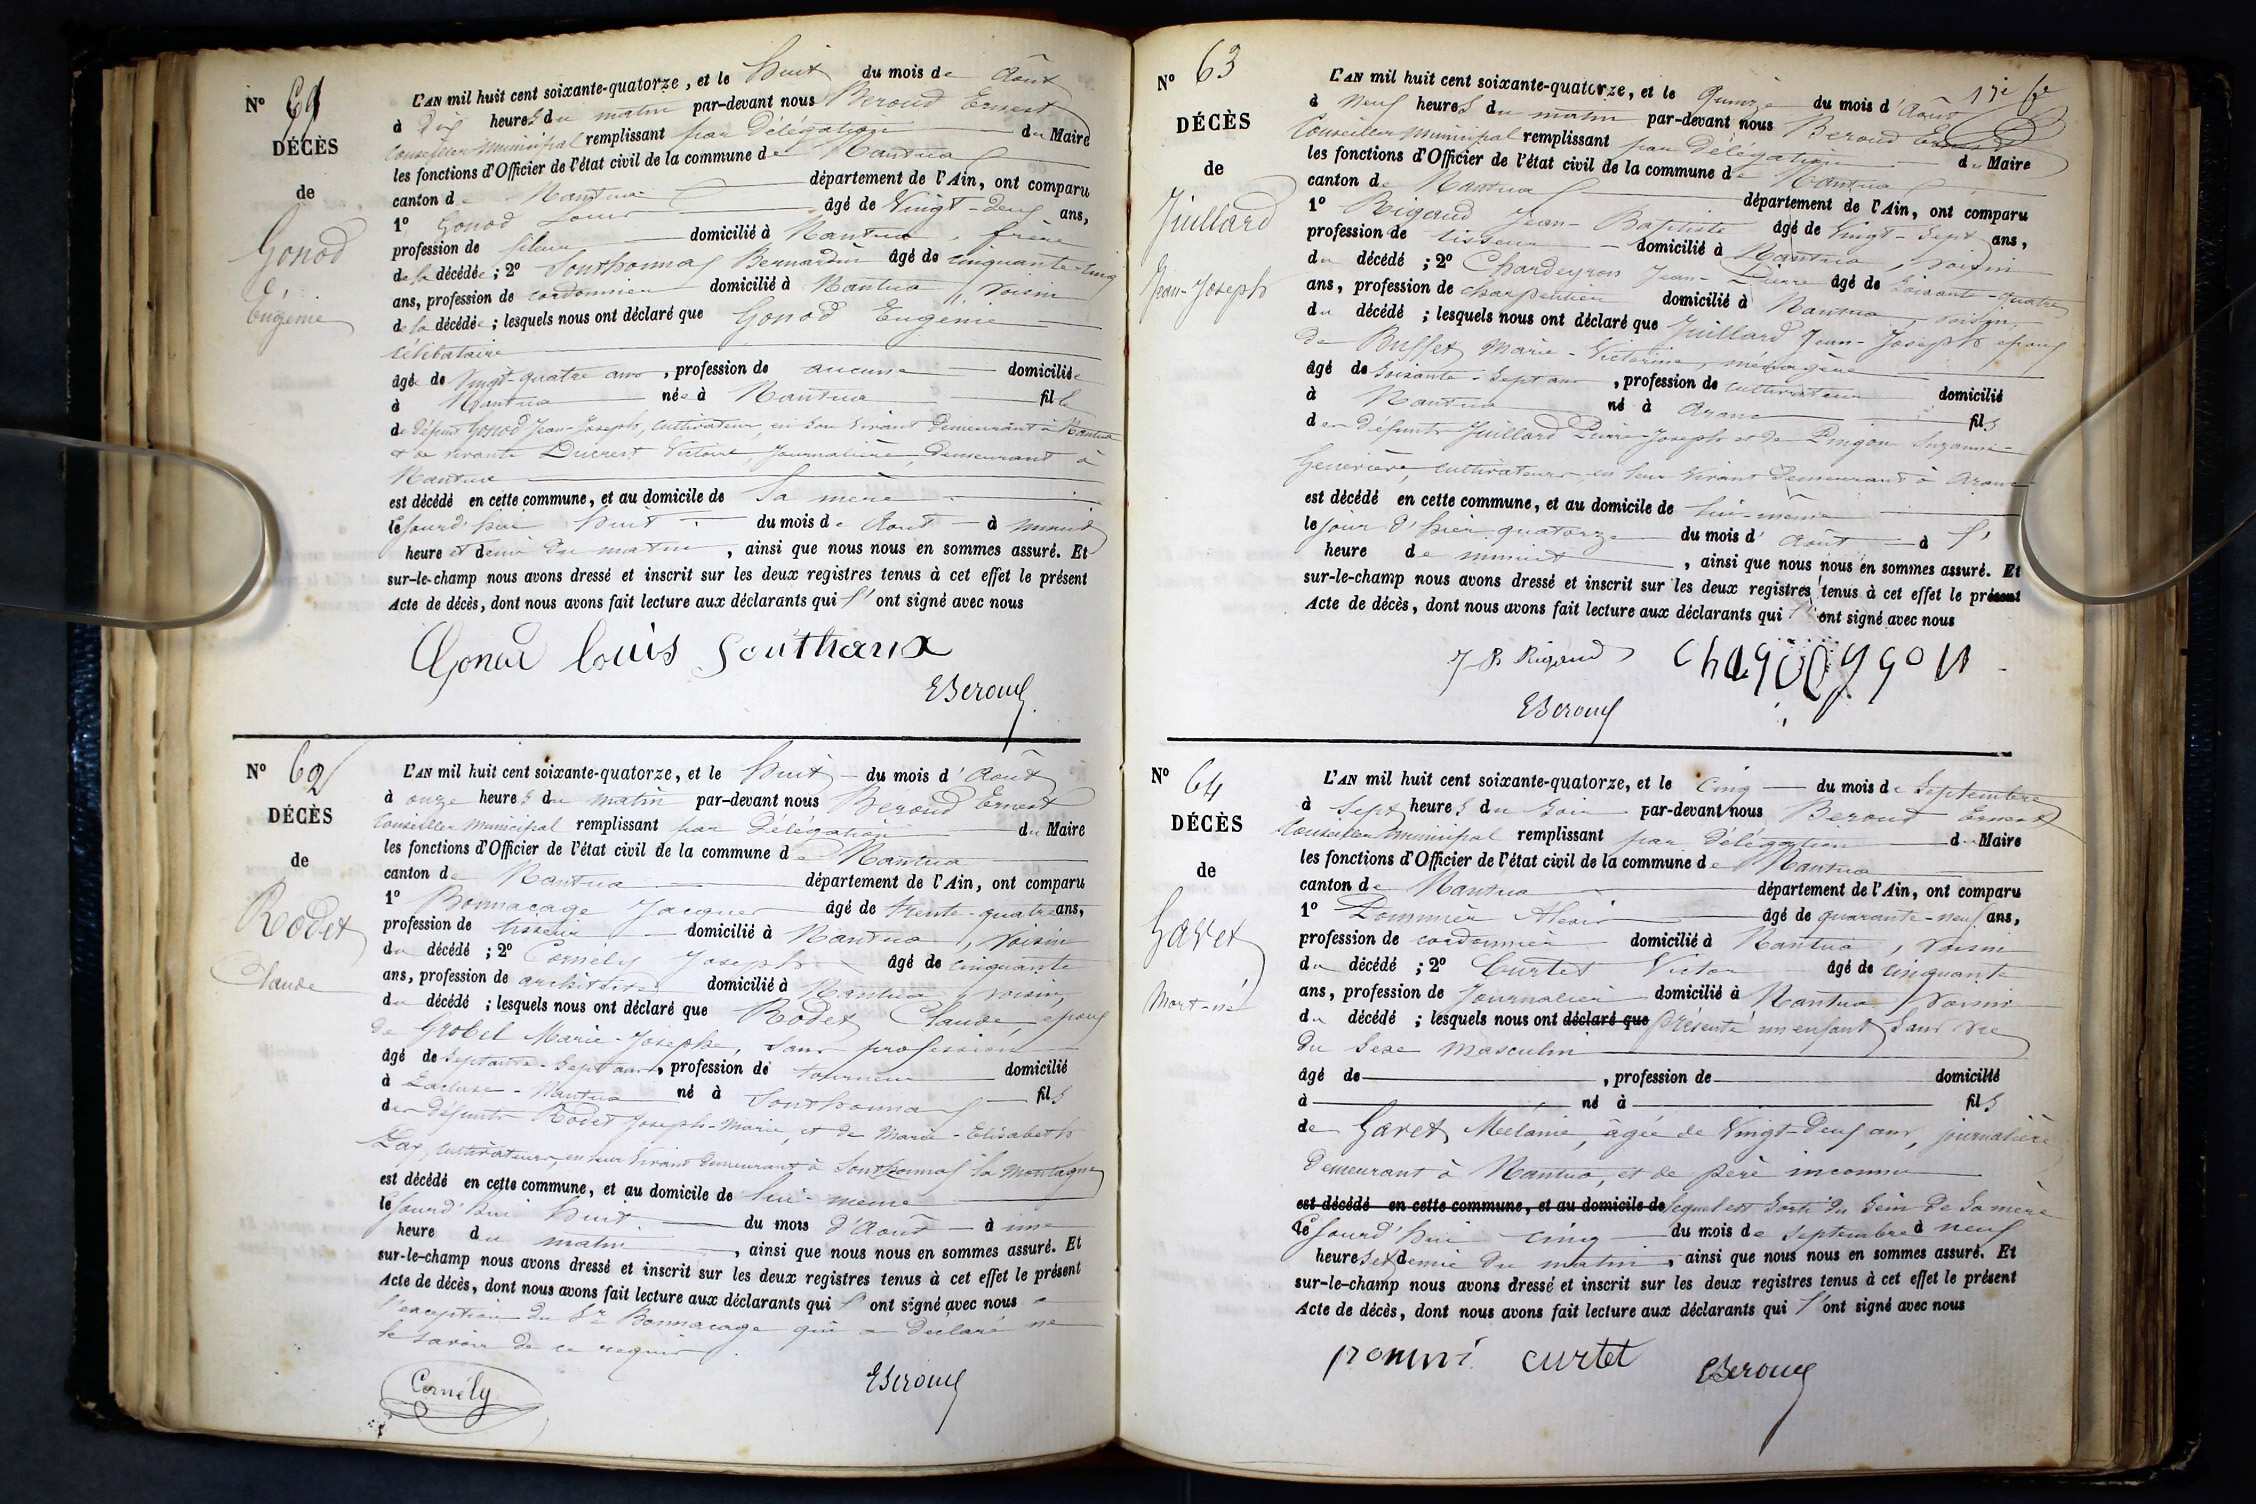 N° 61
DÉCÈS
de
Gonod
Eugénie
L'AN mil huit cent soixante-quatorze, et le huit du mois de Août
à dix heures du matin par-devant nous Beroud Ernest
Conseiller Municipal remplissant par Délégation du Maire
les fonctions d'Officier de l'état civil de la commune de Nantua
canton de Nantua département de l'Ain, ont comparu
1° Gonod Louis âgé de Vingt-deux ans,
profession de fileur domicilié à Nantua, frère
de la décédée ; 2° Southonnax Bernardin âgé de cinquante-cinq
ans, profession de cordonnier domicilié à Nantua, voisin
de la décédée ; lesquels nous ont déclaré que Gonod Eugénie
célibataire
âgée de Vingt-quatre ans, profession de aucune domiciliée
à Nantua née à Nantua fille
de défunt Gonod Jean-Joseph, cultivateur, en son vivant demeurant à Nantua
et de vivante Ducrest Victoire, journalière, demeurant à
Nantua
est décédé en cette commune, et au domicile de sa mère
le jourd'hui huit du mois de Août à minuit
heure et demie du matin, ainsi que nous nous en sommes assuré. Et
sur-le-champ nous avons dressé et inscrit sur les deux registres tenus à cet effet le présent
Acte de décès, dont nous avons fait lecture aux déclarants qui l'ont signé avec nous
Gonod Louis Southonax
EBeroud
N° 62
DÉCÈS
de
Rodet
Claude
L'AN mil huit cent soixante-quatorze, et le huit du mois d'Août
à onze heures du matin par-devant nous Beroud Ernest
Conseiller Municipal remplissant par Délégation du Maire
les fonctions d'Officier de l'état civil de la commune de Nantua
canton de Nantua département de l'Ain, ont comparu
1° Bonnacage Jacques âgé de trente-quatre ans,
profession de tisseur domicilié à Nantua, voisin
du décédé ; 2° Cornély Joseph âgé de cinquante
ans, profession de architecte domicilié à Nantua, voisin,
du décédé ; lesquels nous ont déclaré que Rodet Claude, époux
de Grobel Marie-Josephe, sans profession
âgé de septante-sept ans, profession de tourneur domicilié
à Lacluse-Nantua né à Southonnax fils
des défunts Rodet Joseph-Marie, et de Marie-Elisabeth
cultivateurs, en leur vivant demeurant à Southonnax la Montagne
est décédé en cette commune, et au domicile de lui-même
le jourd'hui huit du mois d'Août à une
heure du matin, ainsi que nous nous en sommes assuré. Et
sur-le-champ nous avons dressé et inscrit sur les deux registres tenus à cet effet le présent
Acte de décès, dont nous avons fait lecture aux déclarants qui l'ont signé avec nous à
l'exception du Sr Bonnacage qui a déclaré ne
le savoir de ce requis.
Cornély
EBeroud
N° 63
DÉCÈS
de
Juillard
Jean-Joseph
L'AN mil huit cent soixante-quatorze, et le Quinze du mois d'Août
à Neuf heures du matin par-devant nous Beroud Ernest
Conseiller Municipal remplissant par Délégation du Maire
les fonctions d'Officier de l'état civil de la commune de Nantua
canton de Nantua département de l'Ain, ont comparu
1° Rigaud Jean-Baptiste âgé de Vingt-Sept ans,
profession de tisseur domicilié à Nantua, voisin
du décédé ; 2° Chardeyron Jean-Pierre âgé de soixante-quatre
ans, profession de charpentier domicilié à Nantua, voisin,
du décédé ; lesquels nous ont déclaré que Juillard Jean-Joseph époux
de Buffet Marie-Victorine, ménagère
âgé de soixante-sept ans, profession de cultivateur domicilié
à Nantua né à Aranc fils
des défunts Juillard Pierre-Joseph et de Pingon Suzanne-
Geneviève, cultivateurs, en leur vivant demeurant à Aranc
est décédé en cette commune, et au domicile de lui-même
le jour d'hier quatorze du mois d'Août à l'
heure de minuit, ainsi que nous nous en sommes assuré. Et
sur-le-champ nous avons dressé et inscrit sur les deux registres tenus à cet effet le présent
Acte de décès, dont nous avons fait lecture aux déclarants qui l'ont signé avec nous
J B Rigaud
EBeroud
N° 64
DÉCÈS
de
Gavet
Mort-né
L'AN mil huit cent soixante-quatorze, et le cinq du mois de Septembre
à sept heures du soir par-devant nous Beroud Ernest
Conseiller Municipal remplissant par Délégation du Maire
les fonctions d'Officier de l'état civil de la commune de Nantua
canton de Nantua département de l'Ain, ont comparu
1° Pommier Alexis âgé de quarante-neuf ans,
profession de cordonnier domicilié à Nantua, voisin
du décédé ; 2° Curtet Victor âgé de cinquante
ans, profession de journalier domicilié à Nantua, voisin
du décédé ; lesquels nous ont déclaré que présenté un enfant sans vie
du sexe masculin
âgé de , profession de domicilié
à né à fils
de Gavet Mélanie, âgée de Vingt-Deux ans, journalière
demeurant à Nantua, et de père inconnu
est décédé en cette commune, et au domicile de lequel est sorti du sein de sa mère
le jourd'hui cinq du mois de septembre à neuf
heures et demie du matin, ainsi que nous nous en sommes assuré. Et
sur-le-champ nous avons dressé et inscrit sur les deux registres tenus à cet effet le présent
Acte de décès, dont nous avons fait lecture aux déclarants qui l'ont signé avec nous
curtet EBeroud